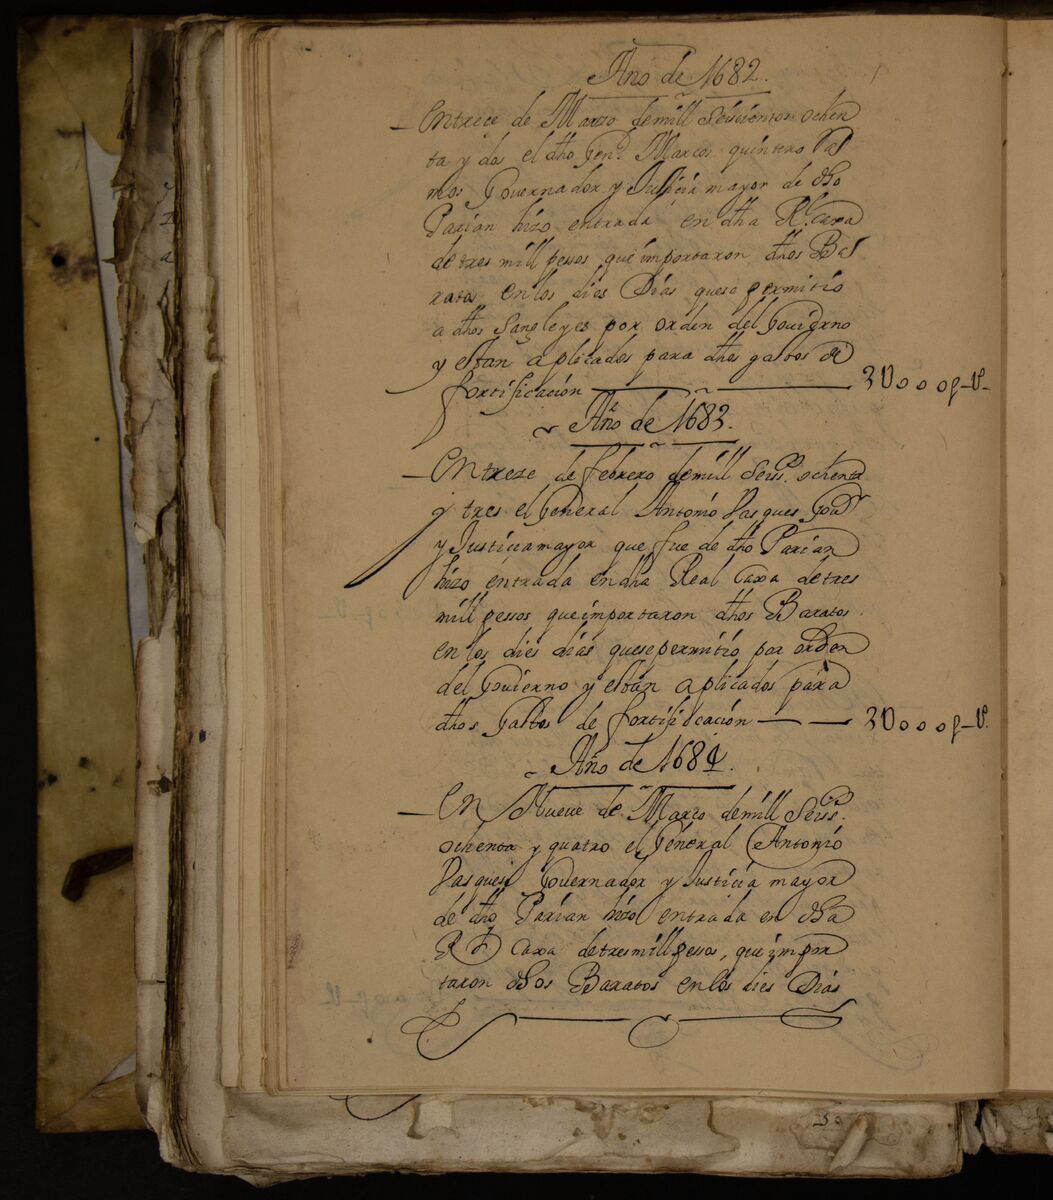 Año de 1682.
En trece de Marzo de mill Seiscientos ochen
ta y dos el dho Gen.l Marcos quintero Ra
mos Governador y Justicia mayor de dho
Parian hizo entrada en dha Rl. Caxa
de tres mill pessos que importaron dhos Ba
ratos en los dies Dias que se permitio
a dhos Sangleyes por orden del Govierno
y estan aplicados para dhos gastos de
fortificación 3U000p-U-
Año de 1683.
En treze de febrero de mill Seiss. ochenta
y tres el General Antonio Vasques Govr
y Justicia mayor que fue de dho Parian
hizo entrada en dha Real Caxa de tres
mill pessos que importaron dhos Baratos
en los dies dias que se permitio por orden
del Govierno y estan aplicados para
dhos Gastos de fortificación 3U000p-U.
Año de 1684.
En Nueve de Marzo de mill Seiss.
ochenta y quatro el General Antonio
Vasques Governador y Justicia mayor
de dho Parian hizo entrada en dha
Rl Caxa de tres mill pessos, que impor
taron dhos Baratos en los dies Dias